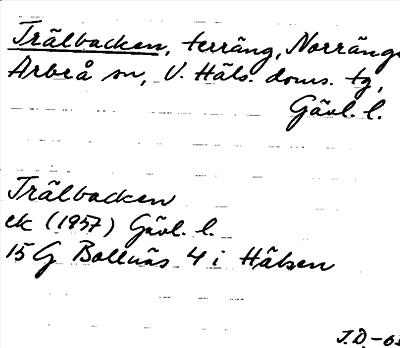 Trälbacken, terräng, Norränge
Arbrå sn, V. Häls. doms. tg,
Gävl. l.
Trälbacken
ek (1957) Gävl. l.
15 G Bollnäs 4 i Hälsen
J.D.-63